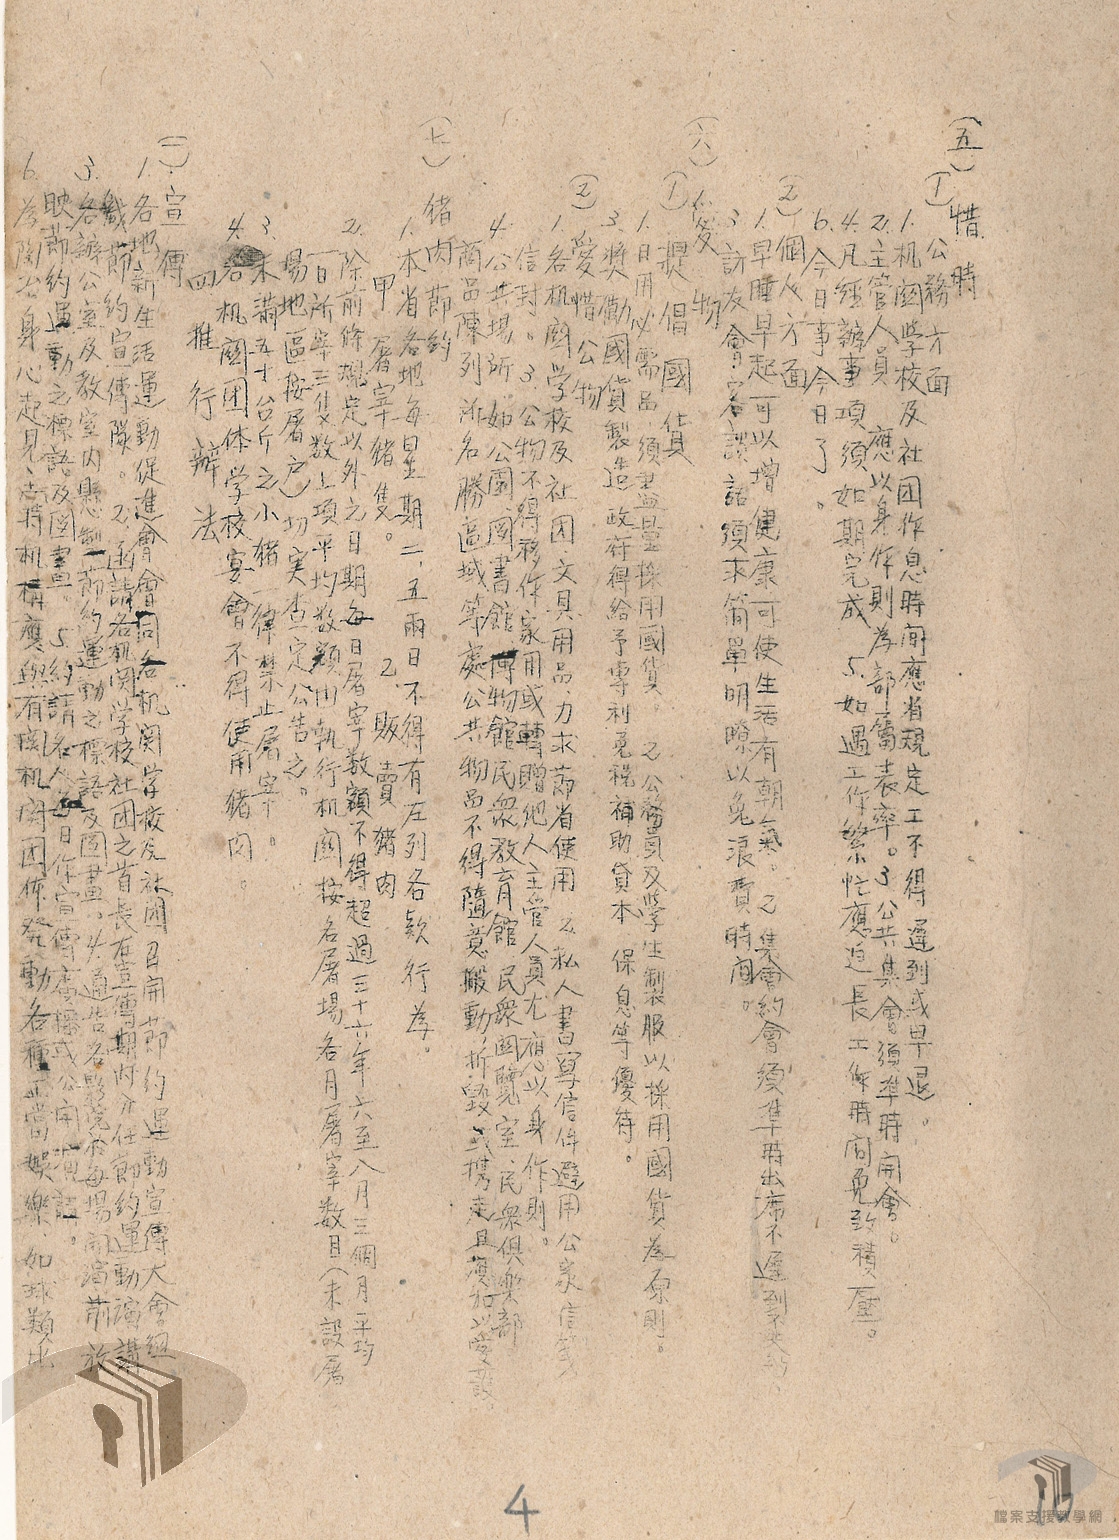 (五)惜時
(1)公務方面
1.机関学校及社团作息時間應省規定工不得遲到或早退。
2.主管人員應以身作則為部屬表率。3.公共集會須準時開會。
4.凡經辦事項須如期完成 5.如遇工作繁忙應延長工作時間免致積壓。
6.今日事今日了。
(2)個人方面
1.早睡早起可以增健康可使生活有朝氣。2.集會約會須準時出席不遲到不失約、
3.訪友會客談話須求简單明瞭以免浪費時间。
(六)愛物
(1)提倡國貨
1.日用必需品須盡量採用國貨。2.公務員及學生製服以採用國貨為原則。
3.獎勵國貨製造政府得給予專利免稅補助貸本保息等優待。
(2)愛惜公物
1.各机関学校及社团、文具用品、力求節省使用 2.私人書寫信件避用公家信箋
信封。3.公物不得移作家用或轉贈他人主管人員尤應以身作則。
4.公共場所如公園圖書館博物館民眾教育館、民眾閱覽室、民眾俱樂部
商品陳列所名勝區域等處公共物品不得隨意搬動折毀或携走且應加以愛護
(七)猪肉節約
1.本省各地每星期二、五兩日不得有左列各款行為。
甲 屠宰豬隻。 乙.販賣猪肉
2.除前條規定以外之日期每日屠宰数額不得超過三十六年六至八月三個月平均
一日所宰三隻数上項平均数額由執行机関按各屠場各月屠宰数目(未設屠
場地區按屠户)切实查定公告之。
3.未满五十台斤之小猪一律禁止屠宰。
4.各机関团体学校宴會不得使用猪肉。
四 推行辦法
(一)宣傳
1.各地新生活運動促進會會同各机関学校及社團召開節約運動宣傳大會組
織節約宣傳隊。2.函請各机関学校社团之首長在宣傳期时介任節約運動演講
3.各辦公室及教室内懸制節約運動之標語及圖畫。4.通告各影院於每場開演前放
映節約運動之標語及圖畫。5.約請名人每日作宣傳廣播或公開演講。
6.為関咨身心起見、主持机構應與有関机関团体發動各種正當娛樂、如球類比
4
檔案支援教學網